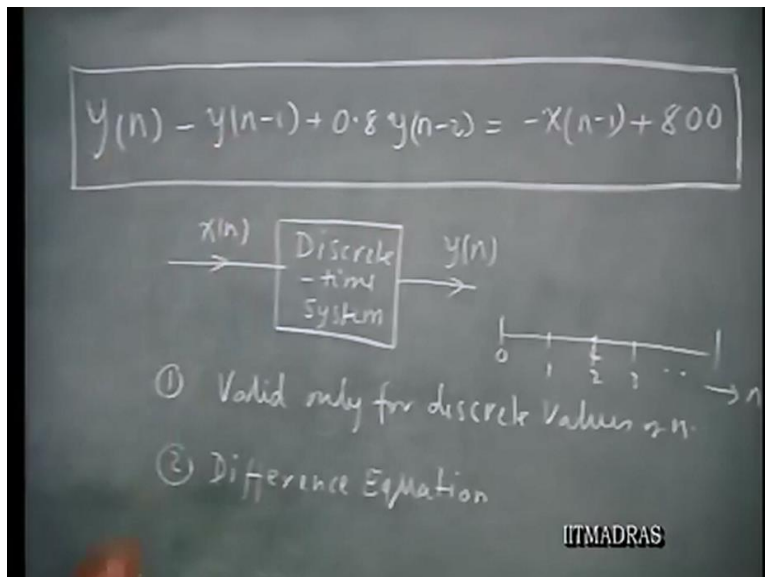 y(n) - y(n-1) + 0.8 y(n-2) = -x(n-1) + 800
x(n)
Discrete
-time
System
y(n)
0 1 2 3 ..
→ n
① Valid only for discrete values of n.
② Difference Equation
IITMADRAS